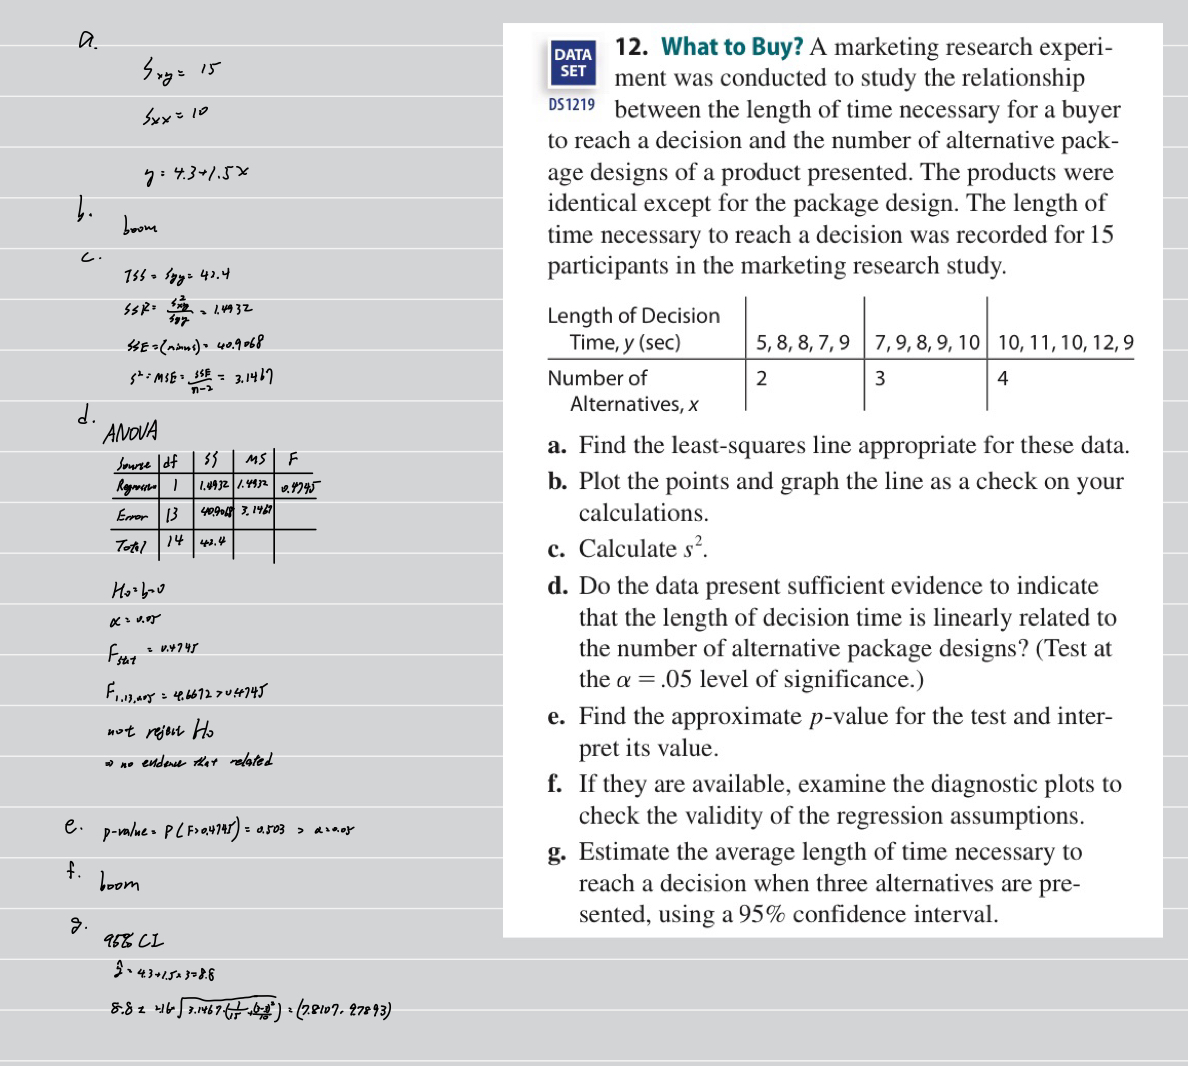 a.
Sxy = 15
Sxx = 10
y = 4.3+1.5x
b.
boom
c.
TSS = Syy = 42.4
SSR = S²xy/Syy = 1.4932
SSE = (minus) = 40.9068
s² = MSE = SSE/n-2 = 3.1467
d.
ANOVA
Source df SS MS F
Regression 1 1.4932 1.4932 0.4745
Error 13 40.9068 3.1467
Total 14 42.4
H₀: b=0
α = 0.05
Fstat = 0.4745
F1,13,0.05 = 4.6672 > 0.4745
not reject H₀
⇒ no evidence that related
e. p-value = P(F>0.4745) = 0.503 > α=0.05
f.
boom
g.
95% CI
ŷ = 4.3+1.5×3=8.8
8.8 ± 2.16 √3.1467 (1/15 + )  = (7.8107, 9.7893)
DATA SET
DS1219
12. What to Buy? A marketing research experi-
ment was conducted to study the relationship
between the length of time necessary for a buyer
to reach a decision and the number of alternative pack-
age designs of a product presented. The products were
identical except for the package design. The length of
time necessary to reach a decision was recorded for 15
participants in the marketing research study.
Length of Decision
Time, y (sec) 5, 8, 8, 7, 9 7, 9, 8, 9, 10 10, 11, 10, 12, 9
Number of 2 3 4
Alternatives, x
a. Find the least-squares line appropriate for these data.
b. Plot the points and graph the line as a check on your
calculations.
c. Calculate s².
d. Do the data present sufficient evidence to indicate
that the length of decision time is linearly related to
the number of alternative package designs? (Test at
the α = .05 level of significance.)
e. Find the approximate p-value for the test and inter-
pret its value.
f. If they are available, examine the diagnostic plots to
check the validity of the regression assumptions.
g. Estimate the average length of time necessary to
reach a decision when three alternatives are pre-
sented, using a 95% confidence interval.